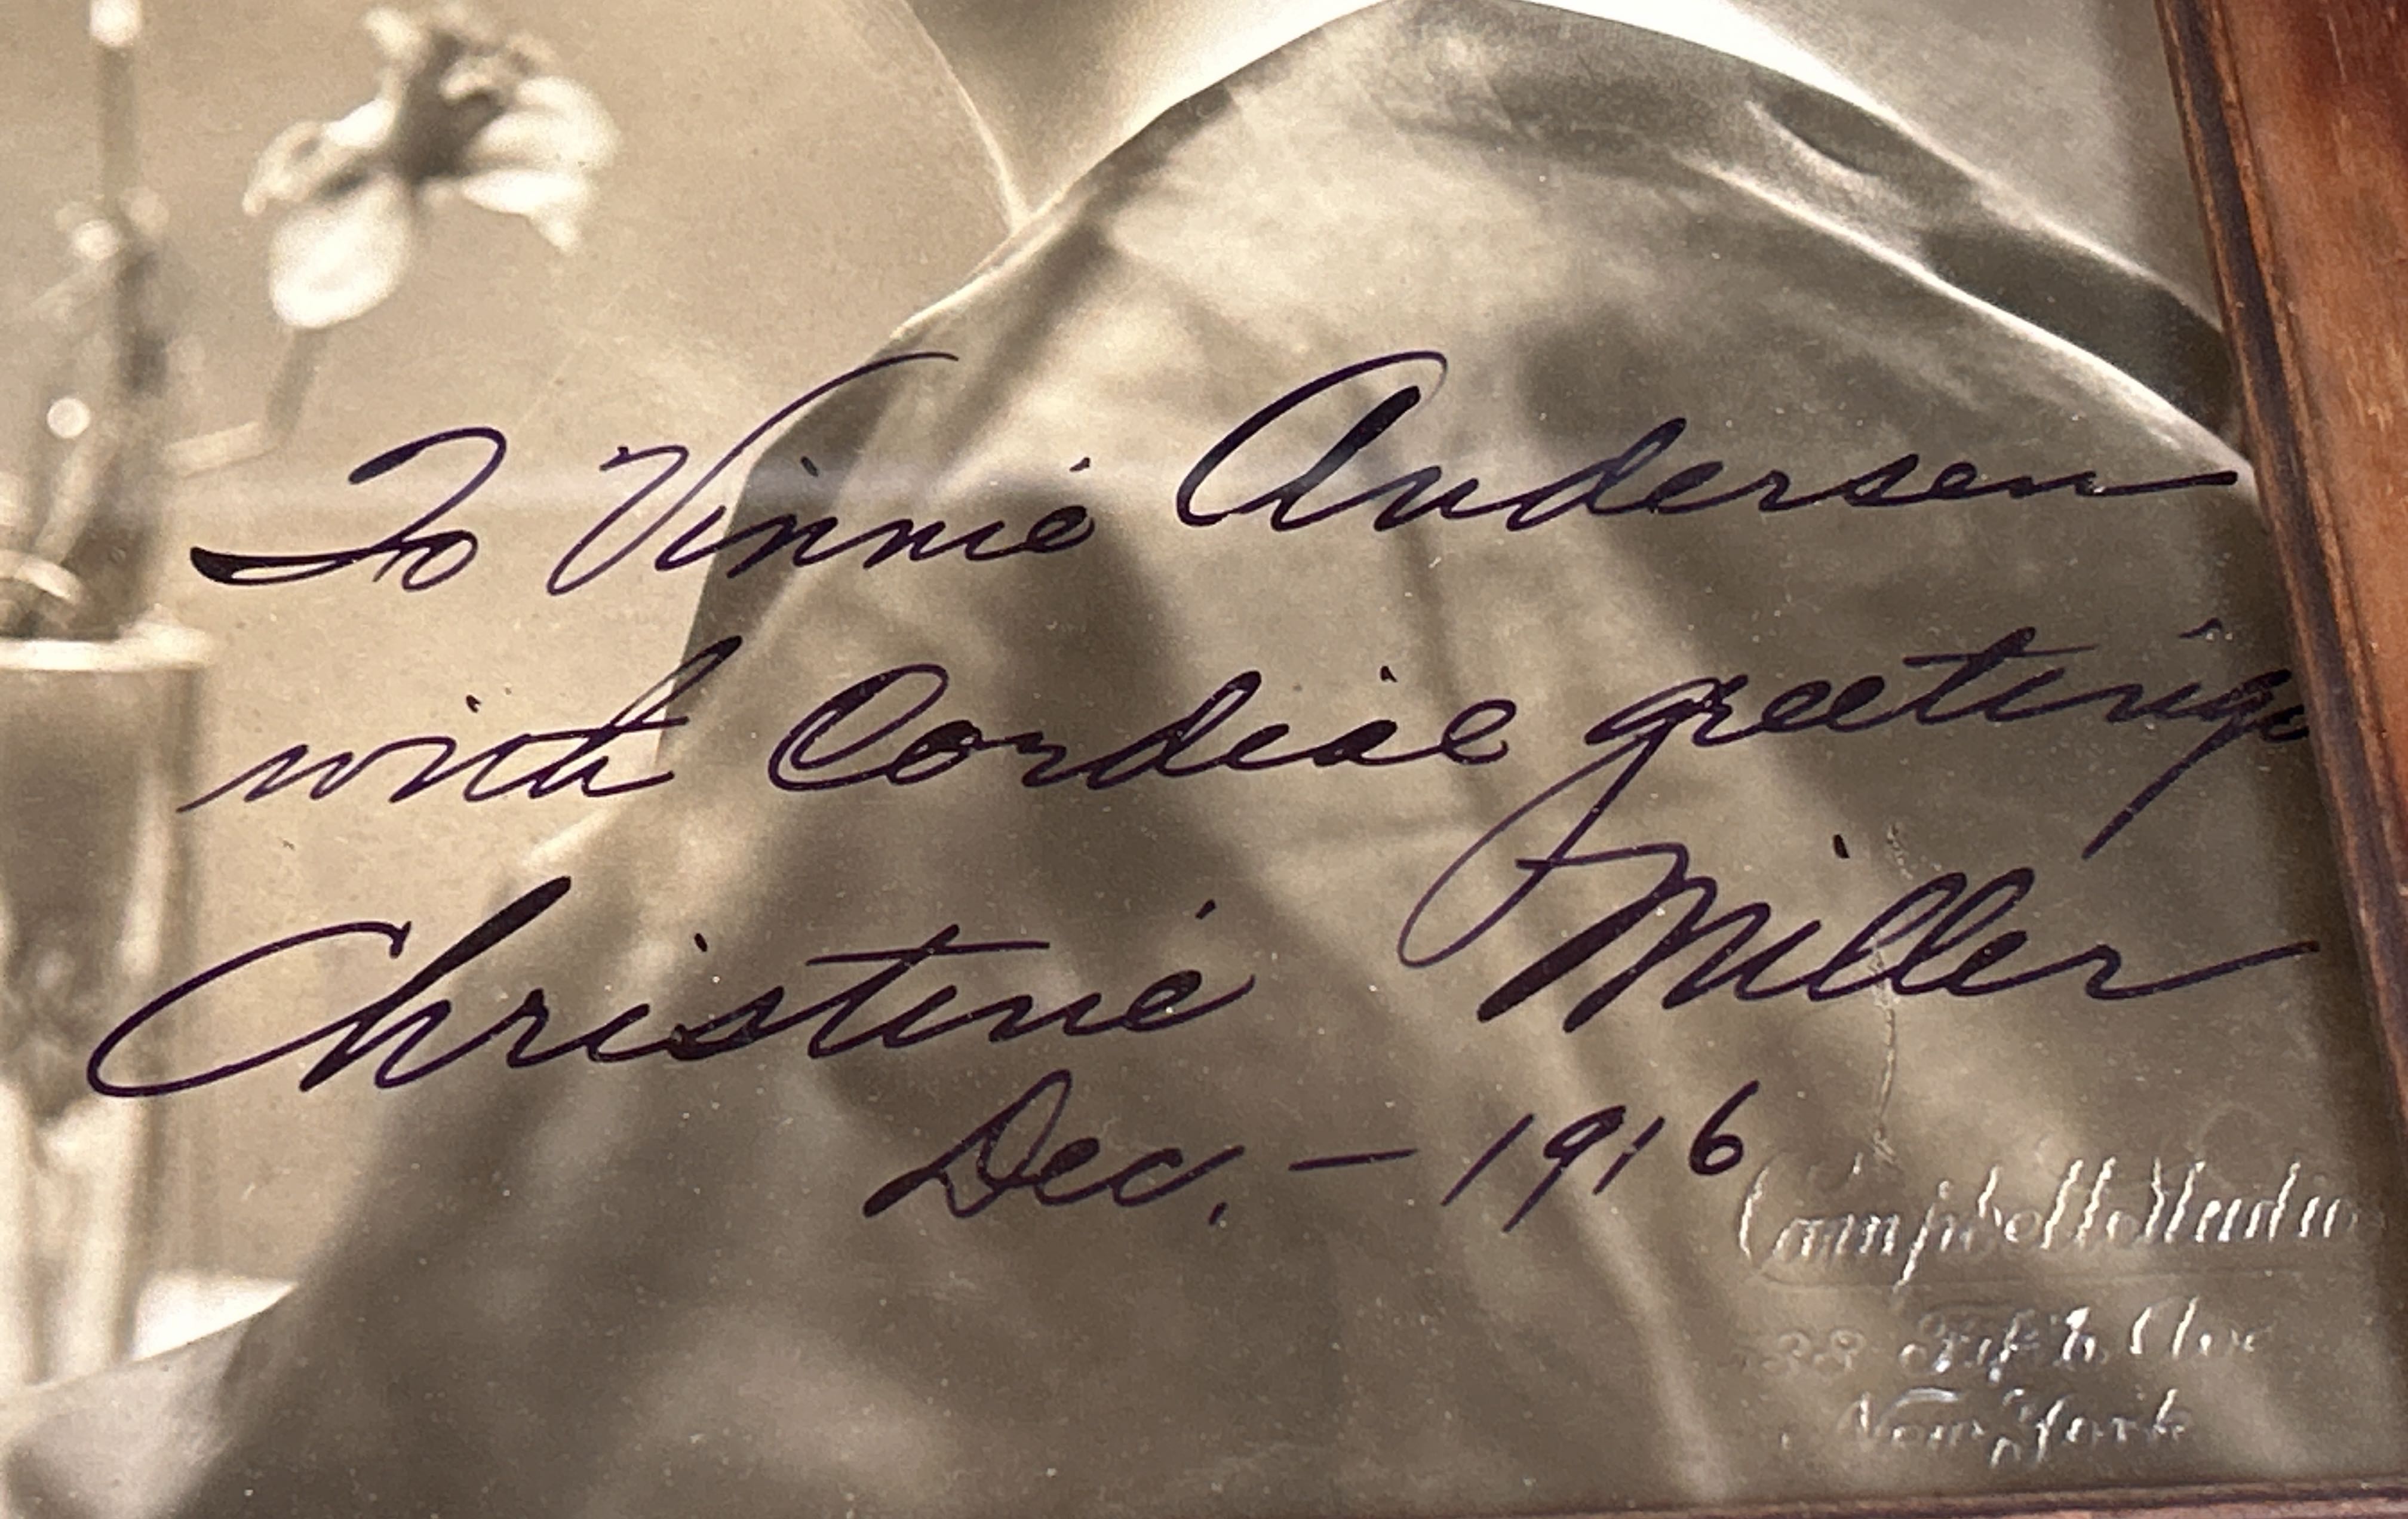 To Vinnie Andersen
with Cordial greetings
Christine Miller
Dec. — 1916
Campbell Studio
Fifth Ave
New York